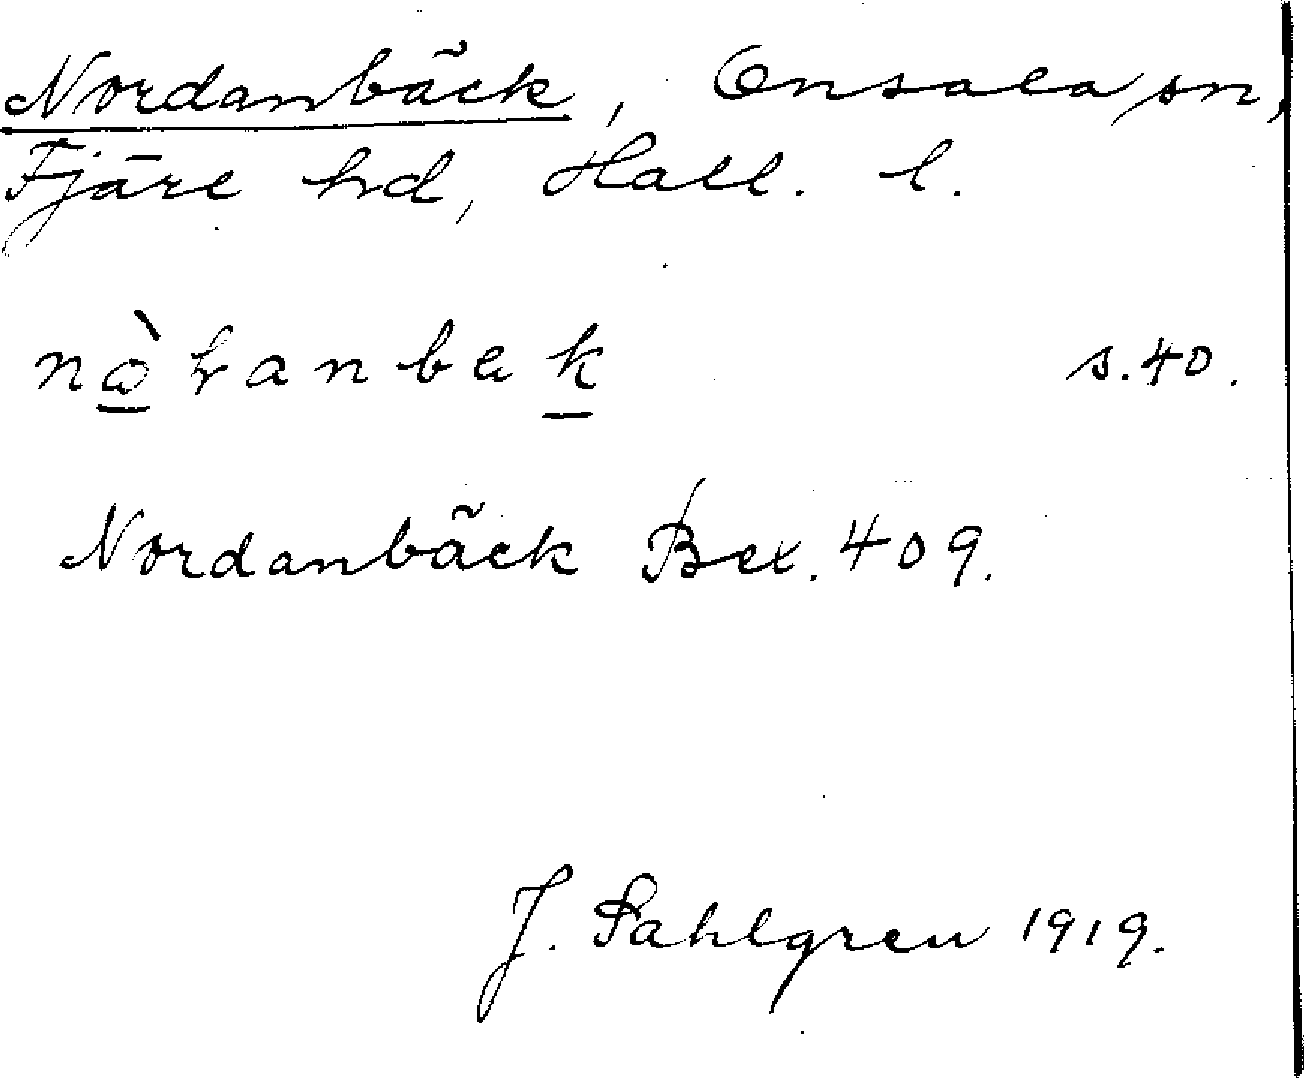 Nordanbäck, Onsala sn,
Fjäre hd, Hall. l.
nòranbak s.40.
Nordanbäck Bex. 409.
J. Sahlgren 1919.